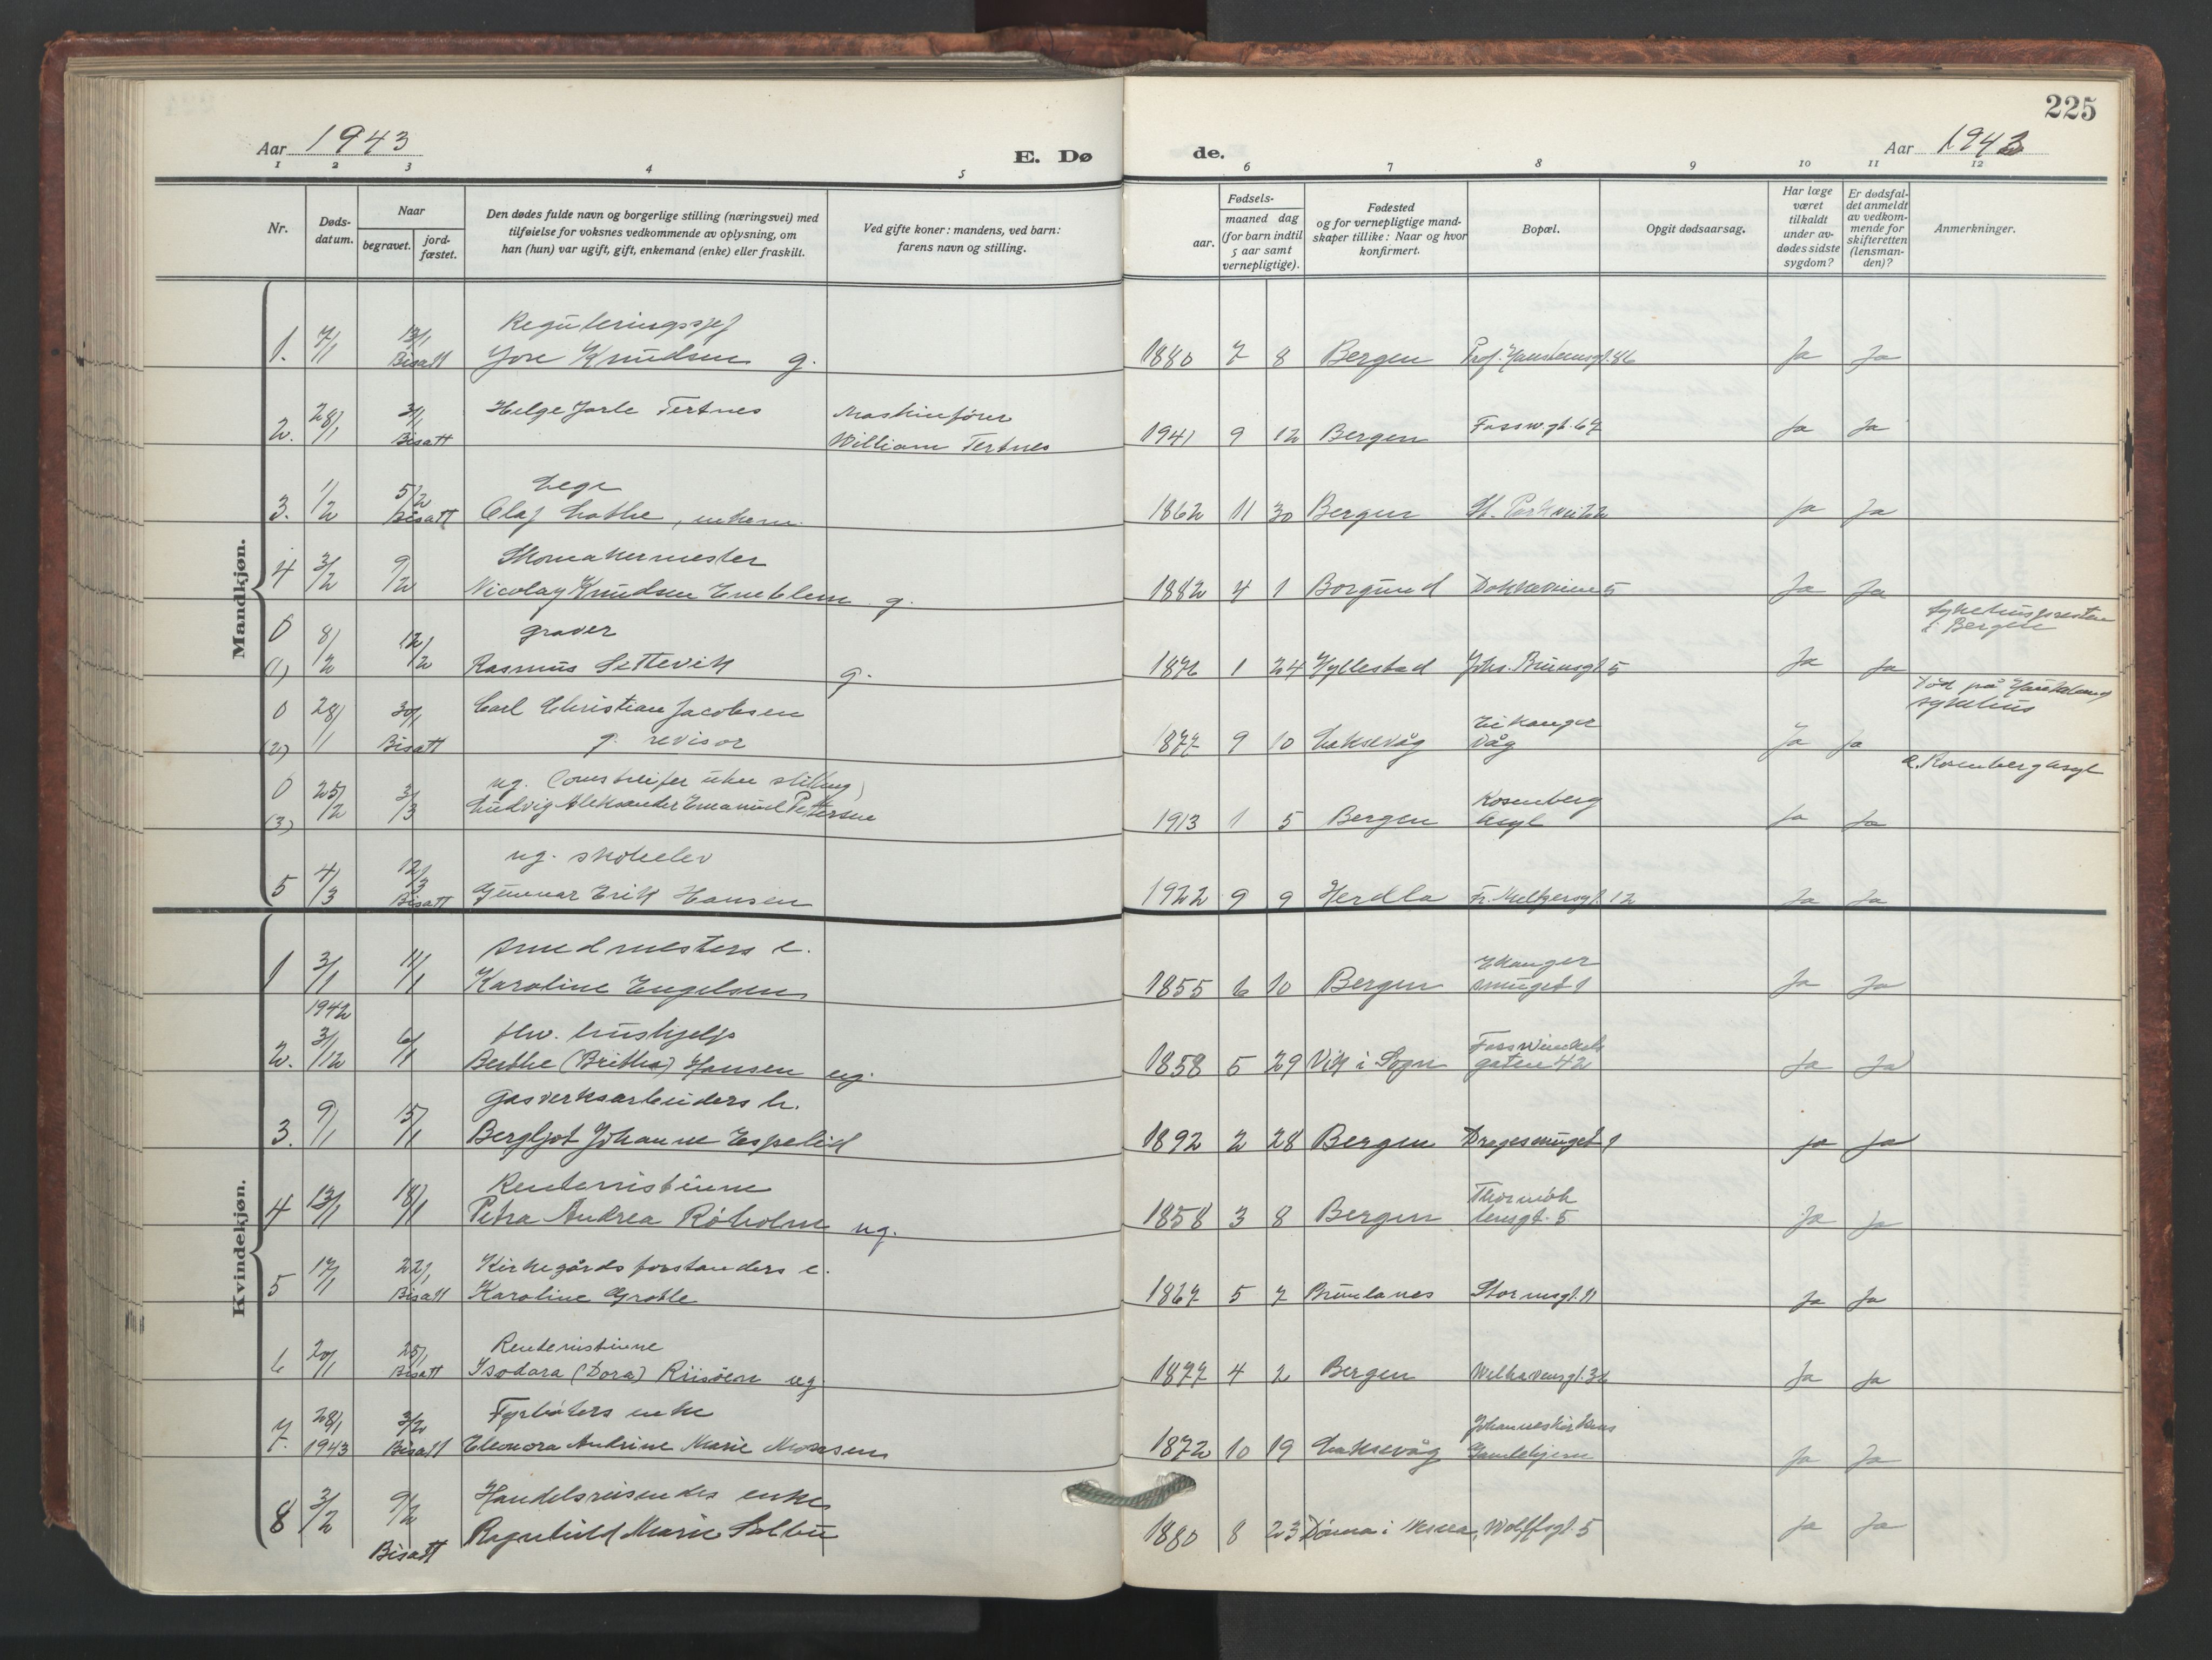 225
Aar 1943
E. Dø
de.
Aar 1943
1 2 3 4 5 6 7 8 9 10 11 12
Nr.
Døds-
datum.
Naar
begravet.
jord-
fæstet.
Den dødes fulde navn og borgerlige stilling (næringsvei) med
tilføielse for voksnes vedkommende av oplysning, om
han (hun) var ugift, gift, enkemand (enke) eller fraskilt.
Ved gifte koner: mandens, ved barn:
farens navn og stilling.
Fødsels-
aar.
maaned dag
(for barn indtil
5 aar samt
vernepligtige).
Fødested
og for vernepligtige mand-
skaper tillike: Naar og hvor
konfirmert.
Bopæl.
Opgit dødsaarsag.
Har læge
været
tilkaldt
under av-
dødes sidste
sygdom?
Er dødsfal-
det anmeldt
av vedkom-
mende for
skifteretten
(lensman-
den)?
Anmerkninger.
Mandkjøn.
Reguleringssjef
1. 7/1 13/1 Bisatt Knudsen g. 1880 7 8 Bergen 86 Ja Ja
Helge Jarle Tertnes Maskinfører
2. 28/1 Bisatt William Tertnes 1941 9 12 Bergen Fossw.gt. 67 Ja Ja
Lege
3. 1/2 5/2 Bisatt Olaf Lothe, enkem. 1862 11 30 Bergen St. Parkvei 22 Ja Ja
Skomakermester
4 3/2 9/2 Nicolay Knudsen Emblem g. 1882 4 1 Borgund Dokkeveien 5 Ja Ja
Sykehuspresten
i Bergen
0 graver
(1) 8/2 12/2 Rasmus Settevik g. 1876 1 24 Hyllestad Johs. Brunsgt 5 Ja Ja
Død på Haukeland
sykehus
0 28/1 30/1 Carl Christian Jacobsen
(2) Bisatt g. revisor 1877 9 10 Laksevåg Eikanger Våg Ja Ja
R. Rosenberg Asyl
0 25/2 3/3 ug. (omstreifer uten stilling)
(3) Ludvig Aleksander Emanuel Pettersen 1913 1 5 Bergen Rosenberg Asyl Ja Ja
ug. skoleelev
5 4/3 12/3 Bisatt Gunnar Erik Hansen 1922 9 9 Herdla Fr. Meltzersgt. 12 Ja Ja
Kvindekjøn.
smedmesters e.
1 3/1 11/1 Karoline Engelsen 1855 6 10 Bergen Ekanger smuget 1 Ja Ja
1942
fhv. hushjelp
2. 3/12 6/1 Berthe (Britha) Hansen ug. 1858 5 29 Vik i Sogn Fosswinckels gaten 42 Ja Ja
Gasverksarbeiders h.
3. 9/1 15/1 Bergljot Johanne Espelid 1892 2 28 Bergen Dragesmuget 1 ja ja
Rentenistinne
4 13/1 18/1 Petra Andrea Röholm ug. 1858 3 8 Bergen Thormöh lensgt. 5 Ja Ja
Kirkegårdsforstanders e.
5 17/1 22/1 Bisatt Karoline Grotle 1867 5 7 Brunlanes Stormsgt. 11 Ja Ja
Rentenistinne
6 20/1 25/1 Bisatt Isodara (Dora) Riisöen ug 1877 4 2 Bergen Welhavensgt. 36 Ja Ja
Fyrbøters enke
7. 28/1 1943 3/2 Bisatt Eleonora Andrine Marie Monsen 1872 10 19 Laksevåg Johanneskirkens Gamlehjem Ja Ja
Handelsreisendes enke
8 3/2 9/2 Bisatt Ragnhild Marie Selbu 1880 8 23 Dönna i Wolffsgt. 5 Ja Ja